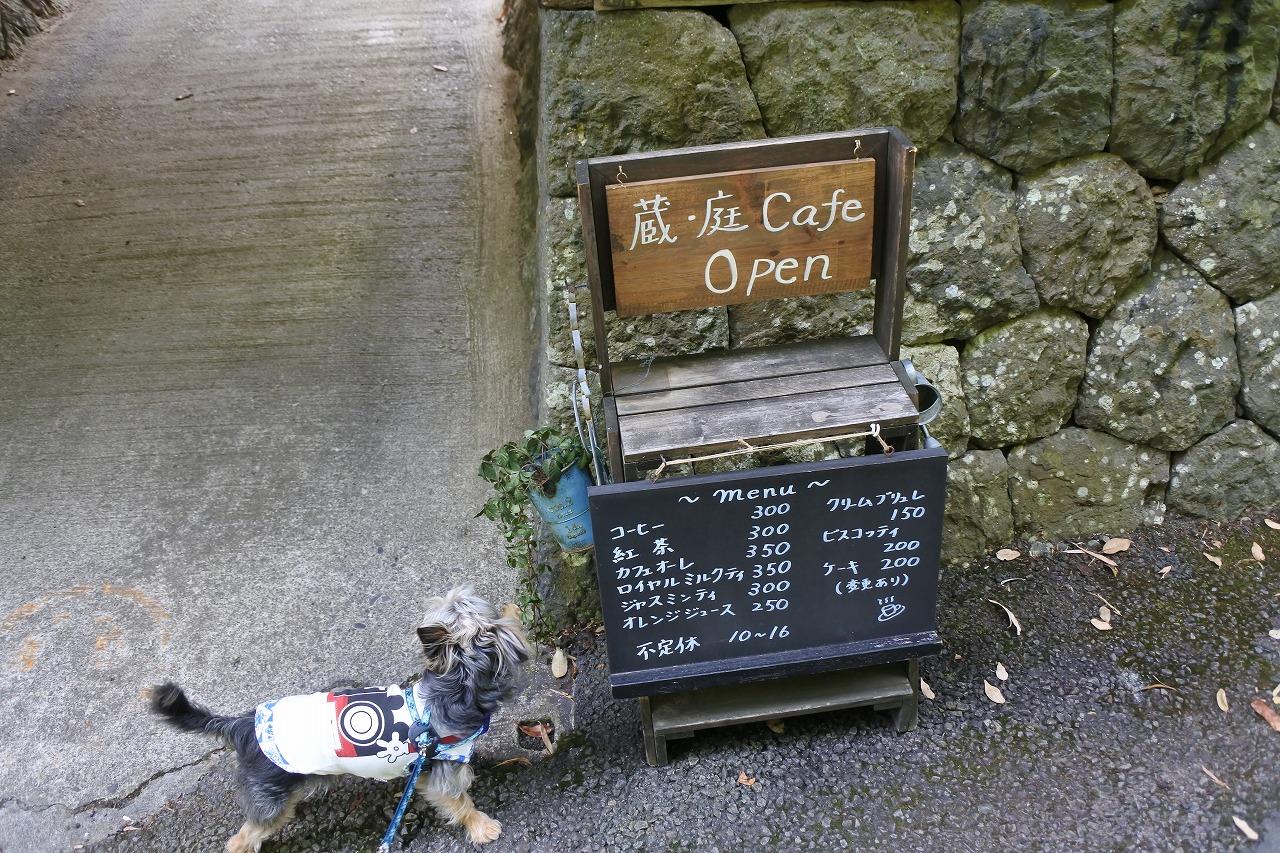 蔵・庭 Cafe
Open
~ menu ~
コーヒー 300
紅茶 300
カフェオーレ 350
ロイヤルミルクティ 350
ジャスミンティ 300
オレンジジュース 250
不定休 10~16
クリームブリュレ
150
ビスコッティ
200
ケーキ 200
(変更あり)